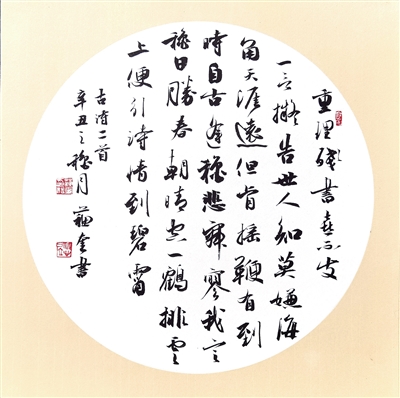 重理残書喜不支
一言擬告世人知莫嫌海
角天涯遠但肯摇鞭有到
時自古逢秋悲寂寥我言
秋日勝春朝晴空一鶴排雲
上便引詩情到碧霄
古詩二首
辛丑之秋月 奎書